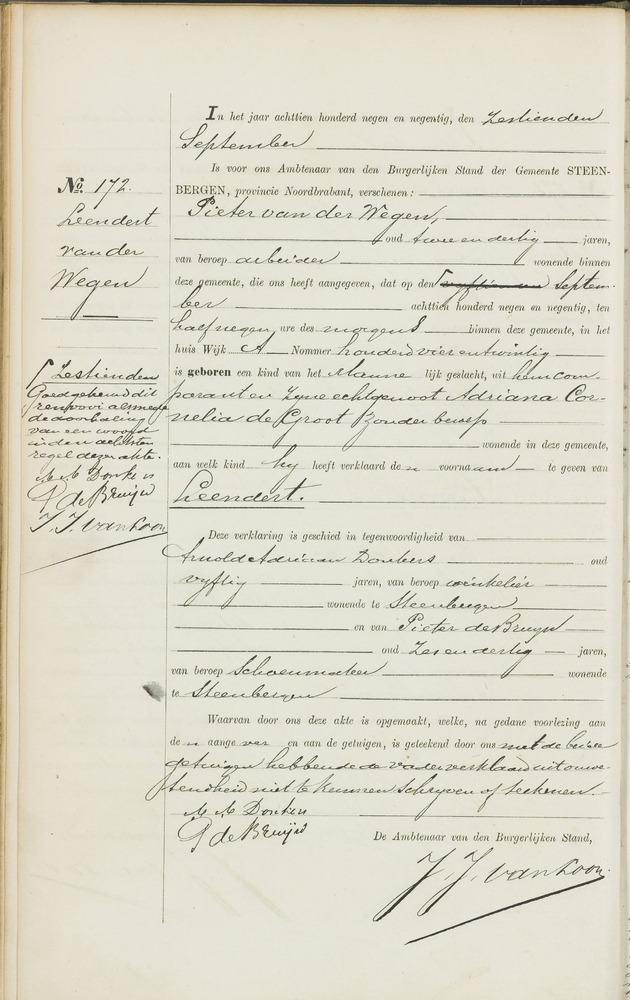 In het jaar achttien honderd negen en negentig, den Zestienden
September
Is voor ons Ambtenaar van den Burgerlijken Stand der Gemeente STEEN-
BERGEN, provincie Noordbrabant, verschenen:
Pieter van der Wegen,
oud twee en dertig jaren,
van beroep arbeider wonende binnen
deze gemeente, die ons heeft aangegeven, dat op den vyftienden Septem-
ber achttien honderd negen en negentig, ten
half negen, ure des morgens binnen deze gemeente, in het
huis Wijk A Nommer honderd vier en twintig
is geboren een kind van het Manne lijk geslacht, uit hem com-
parant en Zyne echtgenoot Adriana Cor-
nelia de Groot Zonder beroep
wonende in deze gemeente,
aan welk kind hy heeft verklaard de n voornaam te geven van
Leendert.
Deze verklaring is geschied in tegenwoordigheid van
Arnold Adriaan Donkers oud
vyftig jaren, van beroep winkelier
wonende te Steenbergen
en van Pieter de Bruyn
oud Zes en dertig jaren,
van beroep Schoenmaker wonende
te Steenbergen
Waarvan door ons deze akte is opgemaakt, welke, na gedane voorlezing aan
de n aangever en aan de getuigen, is geteekend door ons met de beide
getuigen hebbende de vader verklaard uit onwe-
tendheid niet te kunnen Schryven of teekenen.
A A Donkers
P de Bruijn
De Ambtenaar van den Burgerlijken Stand,
J. J. van Loon
No. 172.
Leendert
van der
Wegen
Zestienden
Goedgekeurd dit
renvooi alsmede
de doorhaling
van een woord
in den achtsten
regel dezer akte.
A A Donkers
P de Bruijn
J. J. van Loon